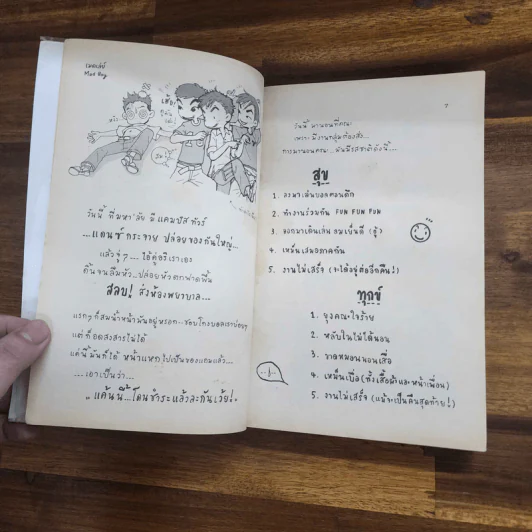 เมดเล่ย์
วันนี้ ที่มหา'ลัย มี แคมปัส ทัวร์
...แดนซ์กระจาย ปล่อยของกันใหญ่...
แล้วจู่ๆ... ไอ้คู่อริเราเอง
ดิ้นจนลืมหัว...ปล่อยหัวตกฟาดพื้น
สลบ! ส่งห้องพยาบาล...
แรกๆ ก็สมน้ำหน้ามันอยู่หรอก...ชอบโกงบอลเราบ่อยๆ
แต่ก็อดสงสารไม่ได้
แค่นี้มันก็ได้ หน้าแหกไปเป็นของแถมแล้ว...
...เอาเป็นว่า...
"แค้นนี้...โดนชำระแล้วละกันเว้ย!"
7
วันนี้ มานอนที่คณะ
เพราะมีงานกลุ่มต้องส่ง...
การมานอนคณะ...มันมีรสชาติดังนี้...
สุข
1. ลงมาเล่นบอลตอนดึก
2. ทำงานร่วมกัน FUN FUN FUN
3. ออกมาเดินเล่น ลมเย็นดี (ฮู้)
4. เหม็นเสมอภาคกัน
5. งานไม่เสร็จ (จะได้อยู่ต่ออีกคืน!)
ทุกข์
1. ยุงคณะใจร้าย
2. หลับในไม่ได้นอน
3. ขาดหมอนนอนเสื่อ
4. เหม็นเบื่อ (ทั้งเสื้อผ้าและหน้าเพื่อน)
5. งานไม่เสร็จ (แม้จะเป็นคืนสุดท้าย!)